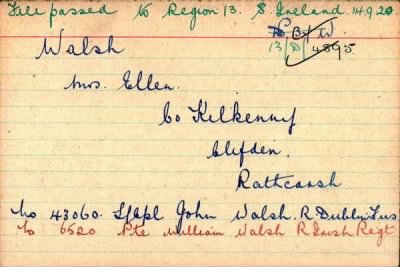 File passed to Region 13. S Ireland. 14.9.20.
13/D/4895
Walsh
Mrs. Ellen.
Co Kilkenny
Clifden.
Rathcarsh
No 43060. L/Cpl John Walsh. R Dublin Fus
No 6520 Pte William Walsh R Irish Regt